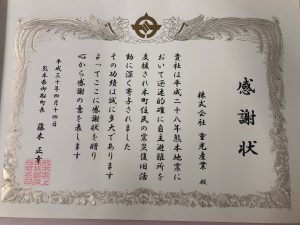 感謝状
株式会社 重光産業 殿
貴社は平成二十八年熊本地震に
おいて迅速的確に自主避難所を
支援され本町住民の震災復旧活
動に深く寄与されました
その功績は誠に多大であります
よってここに感謝状を贈り
心から感謝の意を表します
平成三十年四月十四日
熊本県御船町長 藤木 正幸